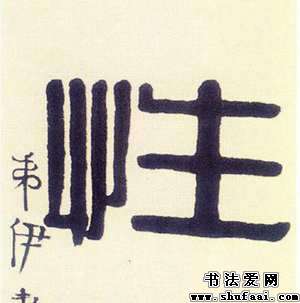 性
弟伊
书法爱网
www.shufaai.com